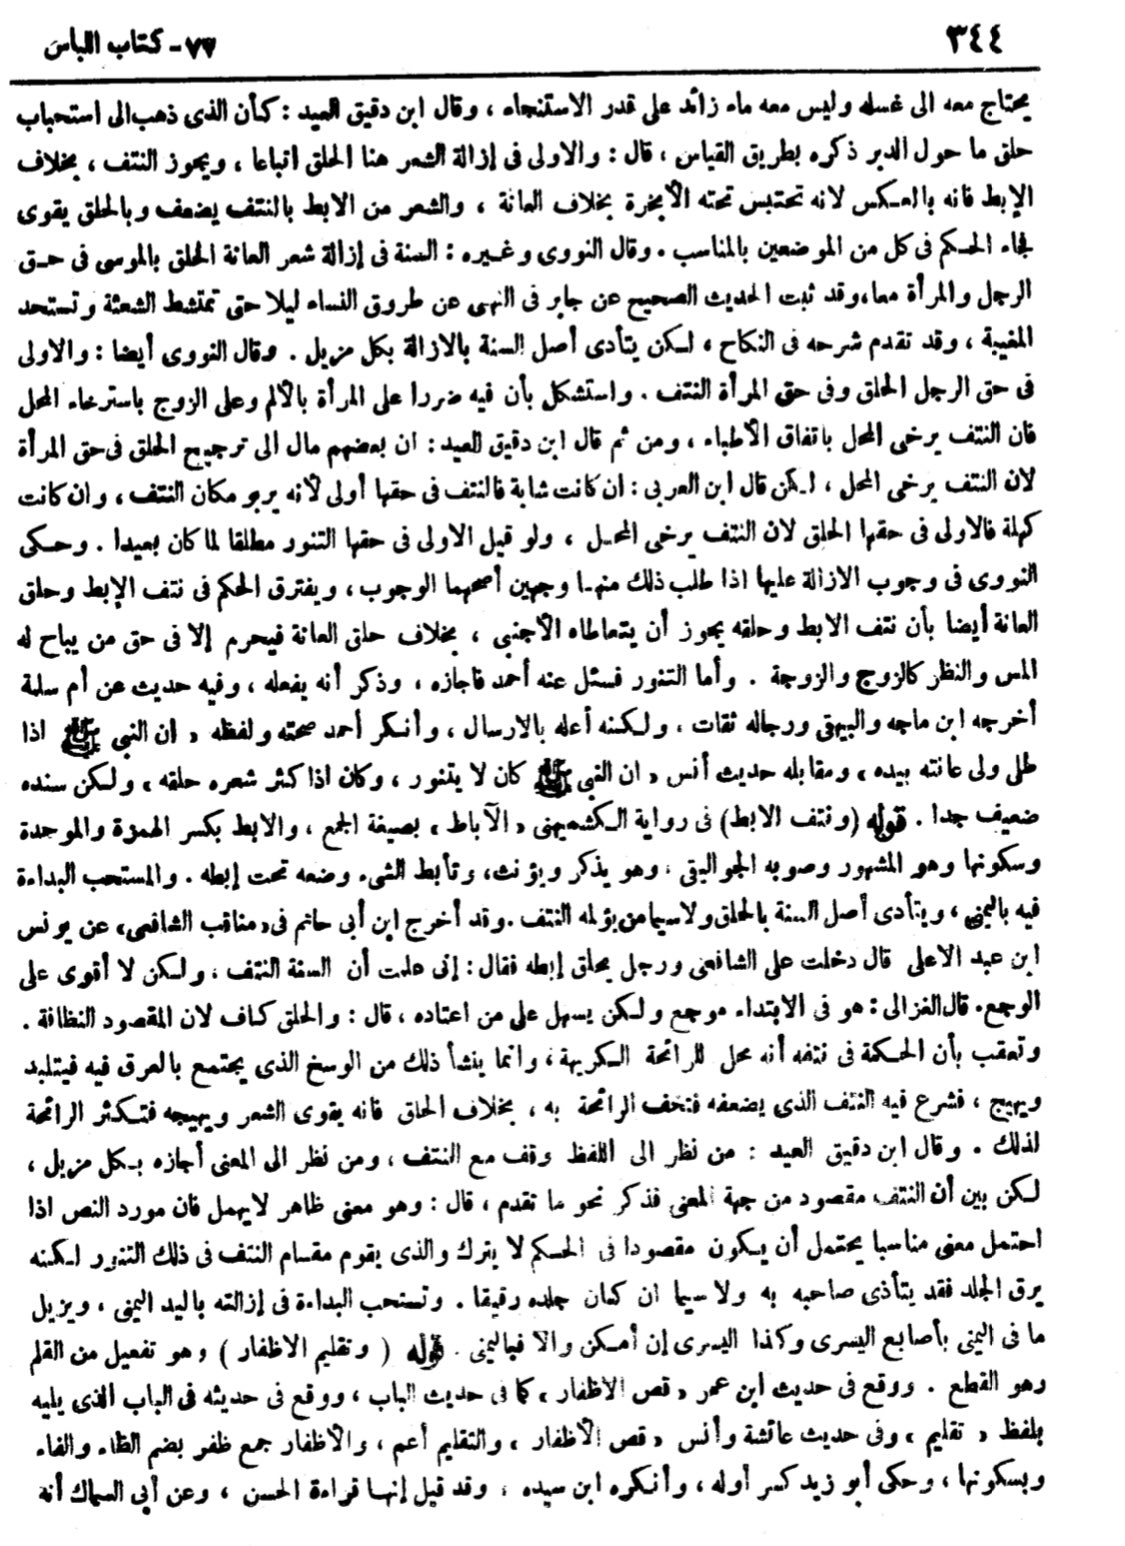 ٣٤٤
٧٧ - كتاب اللباس
يحتاج معه الى غسله وليس معه ماء زائد على قدر الاستنجاء ، وقال ابن دقيق العيد : كأن الذى ذهب الى استحباب
حلق ما حول الدبر ذكره بطريق القياس ، قال : والاولى فى إزالة الشعر هنا الحلق اتباعا ، ويجوز النتف ، بخلاف
الإبط فانه بالعكس لانه تحتبس تحته الأبخرة بخلاف العانة ، والشعر من الابط بالنتف يضعف وبالحلق يقوى
فجاء الحكم فى كل من الموضعين بالمناسب . وقال النووى وغيره : السنة فى إزالة شعر العانة الحلق بالموسى فى حق
الرجل والمرأة معا ، وقد ثبت الحديث الصحيح عن جابر فى النهى عن طروق النساء ليلا حتى تمتشط الشعثة وتستحد
المغيبة ، وقد تقدم شرحه فى النكاح ، لكن يتأدى أصل السنة بالازالة بكل مزيل . وقال النووى أيضا : والاولى
فى حق الرجل الحلق وفى حق المرأة النتف . واستشكل بأن فيه ضررا على المرأة بالألم وعلى الزوج باسترخاء المحل
فان النتف يرخى المحل باتفاق الأطباء ، ومن ثم قال ابن دقيق العيد : ان بعضهم مال الى ترجيح الحلق فى حق المرأة
لان النتف يرخى المحل ، لكن قال ابن العربى : ان كانت شابة فالنتف فى حقها أولى لأنه يربو مكان النتف ، وان كانت
كهلة فالاولى فى حقها الحلق لان النتف يرخى المحل ، ولو قيل الاولى فى حقها التنور مطلقا لما كان بعيدا . وحكى
النووى فى وجوب الازالة عليها اذا طلب ذلك منها وجهين أصحهما الوجوب ، ويفترق الحكم فى نتف الإبط وحلق
العانة أيضا بأن نتف الابط وحلقه يجوز أن يتعاطاه الأجنبى ، بخلاف حلق العانة فيحرم إلا فى حق من يباح له
المس والنظر كالزوج والزوجة . وأما التنور فسئل عنه أحمد فاجازه ، وذكر أنه يفعله ، وفيه حديث عن أم سلمة
أخرجه ابن ماجه والبيهقى ورجاله ثقات ، ولكنه أعله بالارسال ، وأنكر أحمد صحته ولفظه « ان النبى ﷺ اذا
طلى ولى عانته بيده ، ومقابله حديث أنس « ان النبى ﷺ كان لا يتنور ، وكان اذا كثر شعره حلقه ، ولكن سنده
ضعيف جدا . قوله (ونتف الابط) فى رواية الكشميهنى « الآباط » بصيغة الجمع ، والابط بكسر الهمزة والموحدة
وسكونها وهو المشهور وصوبه الجواليقى ، وهو يذكر ويؤنث ، وتأبط الشىء وضعه تحت إبطه . والمستحب البداءة
فيه باليمنى ، ويتأدى أصل السنة بالحلق ولا سيما من يؤلمه النتف . وقد أخرج ابن أبى حاتم فى « مناقب الشافعى » عن يونس
ابن عبد الاعلى قال دخلت على الشافعى ورجل يحلق إبطه فقال : إنى علمت أن السنة النتف ، ولكن لا أقوى على
الوجع . قال الغزالى : هو فى الابتداء موجع ولكن يسهل على من اعتاده ، قال : والحلق كاف لان المقصود النظافة .
وتعقب بأن الحكمة فى نتفه أنه محل للرائحة الكريهة ، وانما ينشأ ذلك من الوسخ الذى يجتمع بالعرق فيه فيتلبد
ويهيج ، فشرع فيه النتف الذى يضعفه فتخف الرائحة به ، بخلاف الحلق فانه يقوى الشعر ويهيجه فتكثر الرائحة
لذلك . وقال ابن دقيق العيد : من نظر الى اللفظ وقف مع النتف ، ومن نظر الى المعنى أجازه بكل مزيل ،
لكن بين أن النتف مقصود من جهة المعنى فذكر نحو ما تقدم ، قال : وهو معنى ظاهر لا يهمل فان مورد النص اذا
احتمل معنى مناسبا يحتمل أن يكون مقصودا فى الحكم لا يترك والذى يقوم مقام النتف فى ذلك التنور لكنه
يرق الجلد فقد يتأذى صاحبه به ولا سيما ان كان جلده رقيقا . وتستحب البداءة فى إزالته باليد اليمنى ، ويزيل
ما فى اليمنى بأصابع اليسرى وكذا اليسرى إن أمكن والا فباليمنى . قوله ( وتقليم الاظفار ) وهو تفعيل من القلم
وهو القطع . ووقع فى حديث ابن عمر « قص الاظفار » كما فى حديث الباب ، ووقع فى حديثه فى الباب الذى يليه
بلفظ « تقليم » وفى حديث عائشة وأنس « قص الأظفار » والتقليم أعم ، والأظفار جمع ظفر بضم الظاء والفاء
وبسكونها ، وحكى أبو زيد كسر أوله ، وأنكره ابن سيده ، وقد قيل إنها قراءة الحسن ، وعن أبى السماك أنه